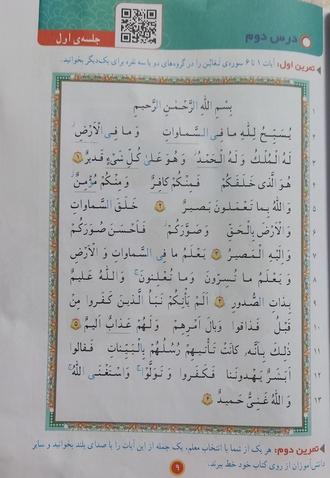 درس دوم
جلسه‌ی اول
تمرین اول: آیات ۱ تا ۶ سوره‌ی تغابُن را در گروه‌های دو یا سه نفره برای یک‌دیگر بخوانید.
بِسْمِ اللّٰهِ الرَّحْمٰنِ الرَّحيمِ
۱
يُسَبِّحُ لِلّٰهِ ما فِي السَّماواتِ وَ ما فِي الْاَرْضِ
۲
لَهُ الْمُلْكُ وَ لَهُ الْحَمْدُ وَ هُوَ عَلىٰ كُلِّ شَيْءٍ قَديرٌ ۱
۳
هُوَ الَّذي خَلَقَكُمْ فَمِنْكُمْ كافِرٌ وَ مِنْكُمْ مُؤْمِنٌ
۴
وَ اللّٰهُ بِما تَعْمَلونَ بَصيرٌ ۲ خَلَقَ السَّماواتِ
۵
وَ الْاَرْضَ بِالْحَقِّ وَ صَوَّرَكُمْ فَاَحْسَنَ صُوَرَكُمْ
۶
وَ اِلَيْهِ الْمَصيرُ ۳ يَعْلَمُ ما فِي السَّماواتِ وَ الْاَرْضِ
۷
وَ يَعْلَمُ ما تُسِرّونَ وَ ما تُعْلِنونَ وَ اللّٰهُ عَليمٌ
۸
بِذاتِ الصُّدورِ ۴ اَلَمْ يَأْتِكُمْ نَبَأُ الَّذينَ كَفَروا مِنْ
۹
قَبْلُ فَذاقوا وَبالَ اَمْرِهِمْ وَ لَهُمْ عَذابٌ اَليمٌ ۵
۱۰
ذٰلِكَ بِاَنَّهُ كانَتْ تَأْتيهِمْ رُسُلُهُمْ بِالْبَيِّناتِ فَقالوا
۱۱
اَبَشَرٌ يَهْدونَنا فَكَفَروا وَ تَوَلَّوْا وَ اسْتَغْنَى اللّٰهُ
۱۲
وَ اللّٰهُ غَنِيٌّ حَميدٌ ۶
۱۳
تمرین دوم: هر یک از شما با انتخاب معلم، یک جمله از این آیات را با صدای بلند بخوانید و سایر
دانش‌آموزان از روی کتاب خود خط ببرند.
۹